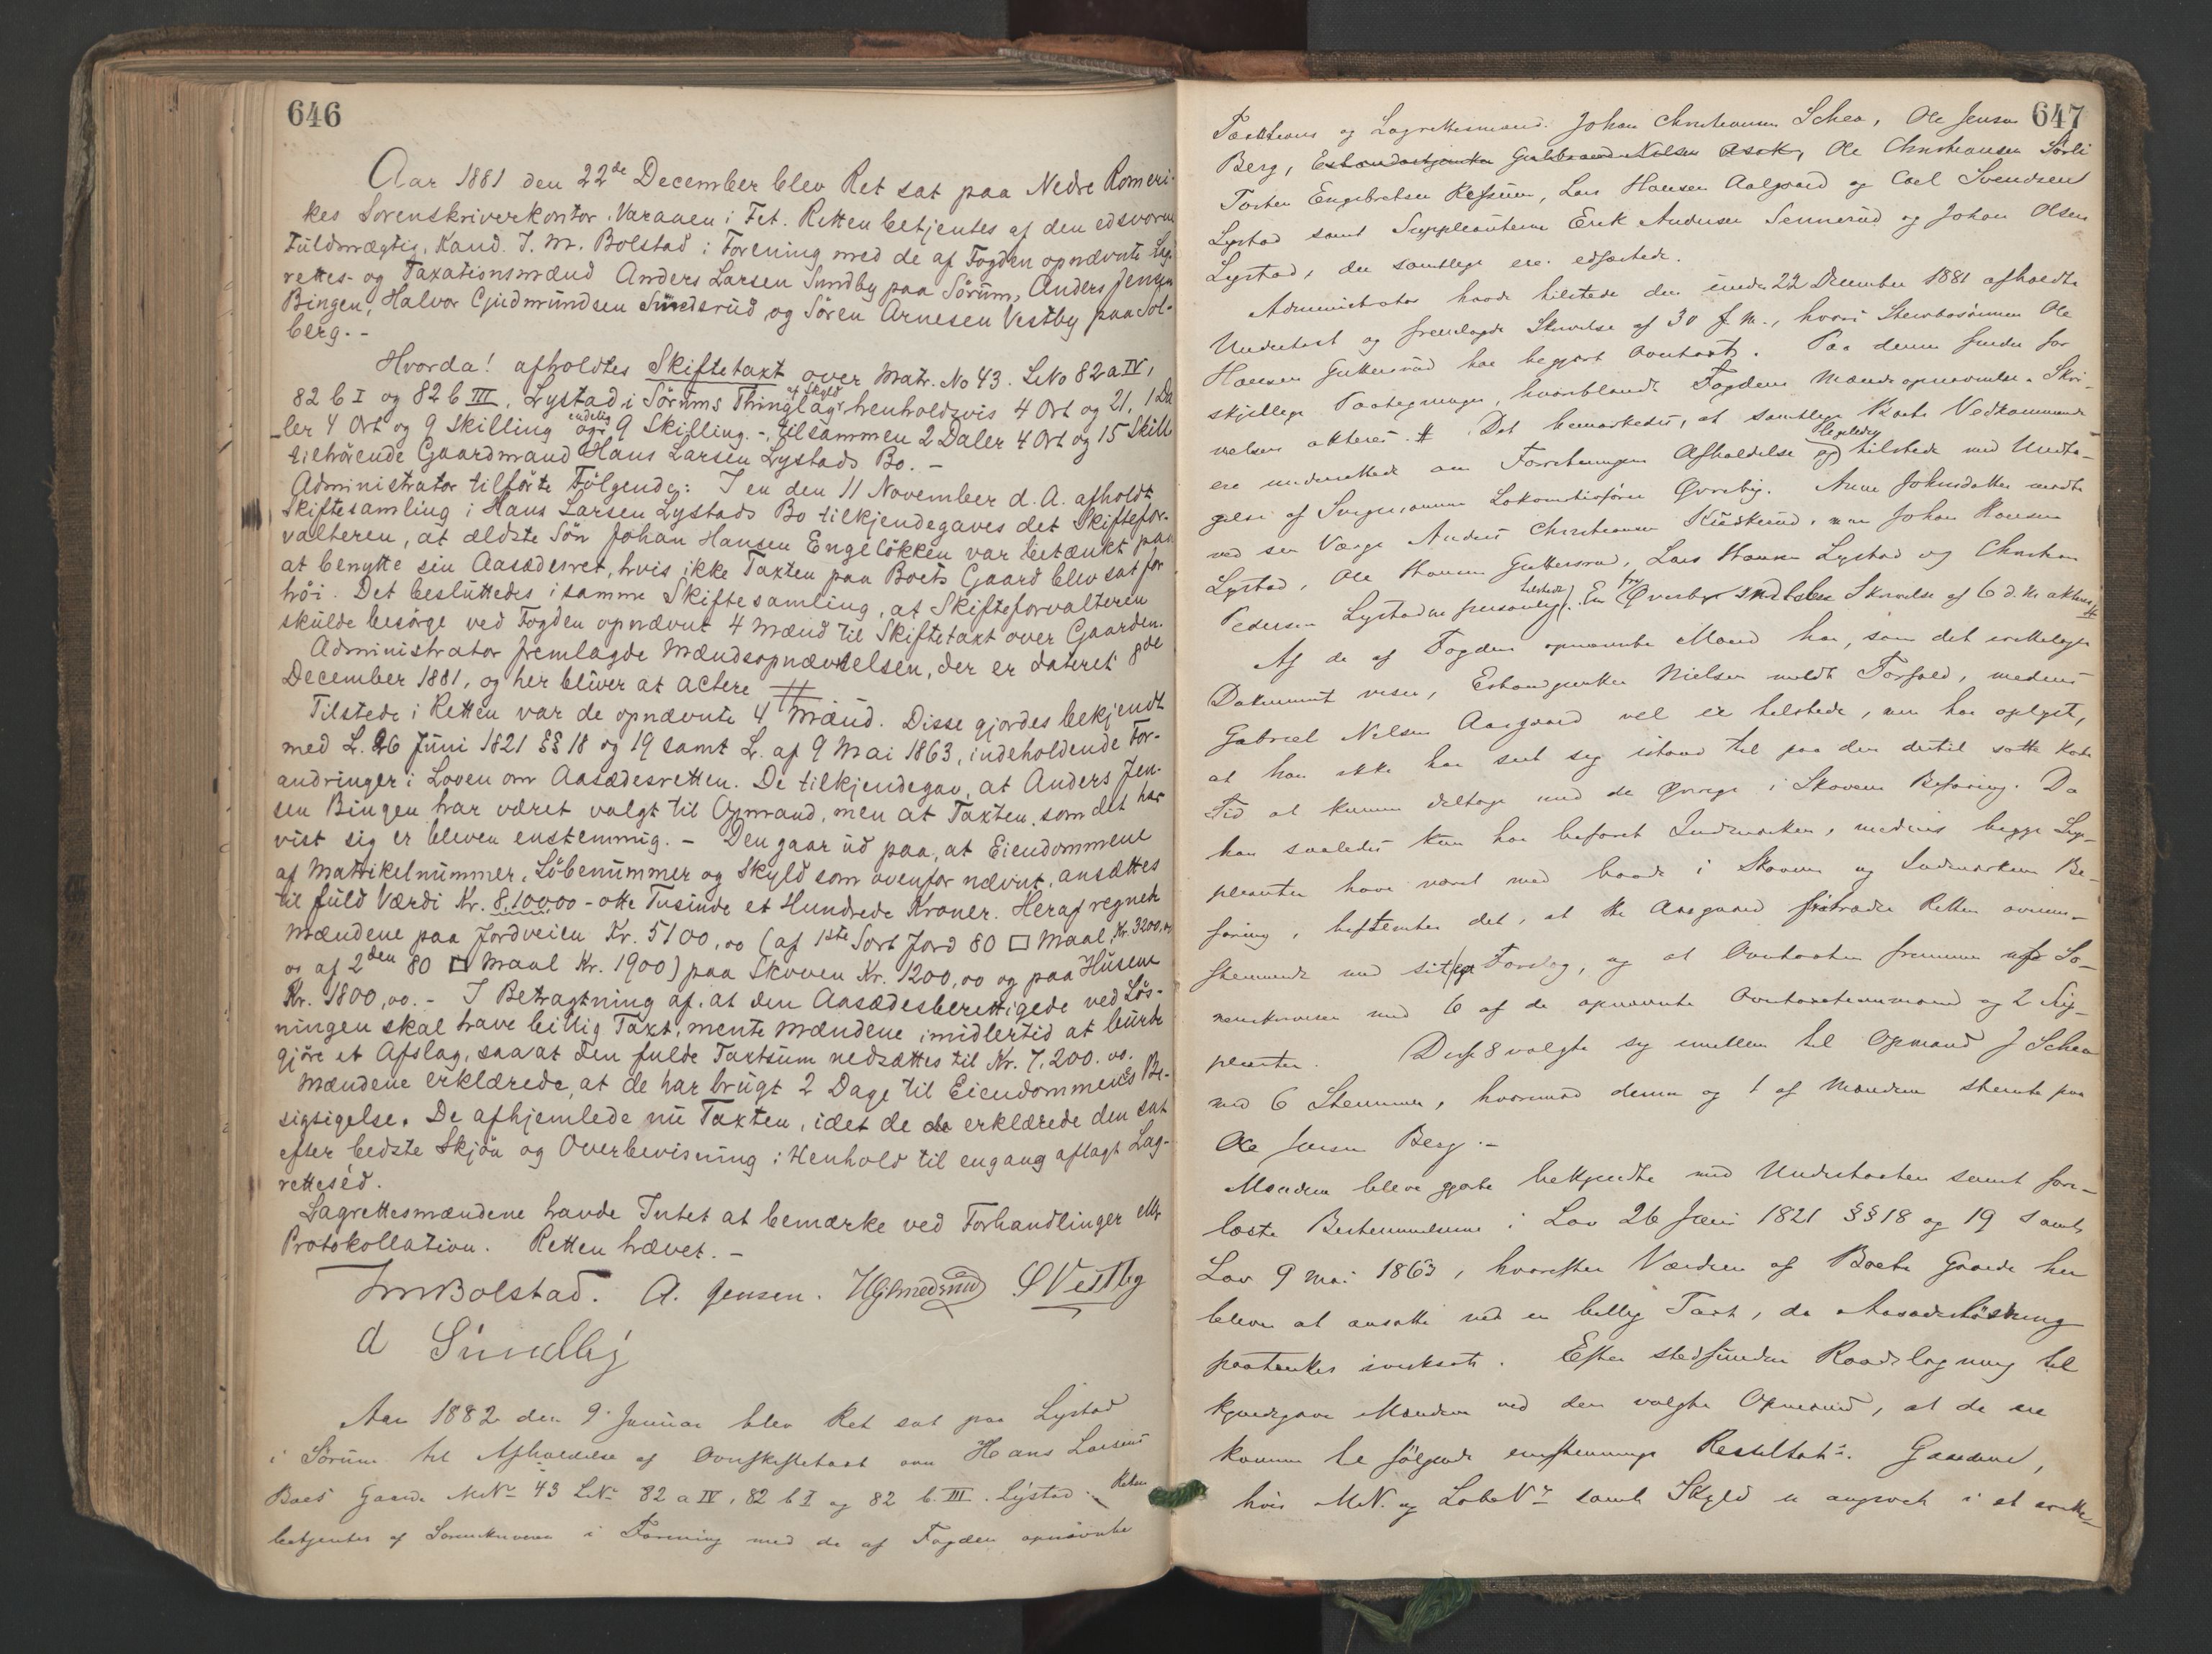 646
Aar 1881 den 22de December blev Ret sat paa Nedre Romeri-
kes Sorenskriverkontor, Varaaen i Fet. Retten betjentes af den edsvorne
Fuldmægtig, Kand. J. M. Bolstad i Forening med de af Fogden opnævnte Lag-
rettes- og Taxationsmænd Anders Larsen Sundby paa Sörum, Anders Jensen
Bingen, Halvor Gjudmundsen Smedsrud og Sören Arnesen Vestby paa Sol-
berg. -
Hvorda! afholdtes Skiftetaxt over Matr. No 43. LNo 82 a IV,
82 b I og 82 b III, Lystad i Sörums Thinglag af Skyld henholdsvis 4 Ort og 21, 1 Da
-ler 4 Ort og 9 Skilling og endelig 9 Skilling. -, tilsammen 2 Daler 4 Ort og 15 Skill.
tilhörende Gaardmand Hans Larsen Lystads Bo. -
Administrator tilförte Fölgende: I en den 11 November d. A. afholdt
Skiftesamling i Hans Larsen Lystads Bo tilkjendegaves det Skiftefor-
valteren, at ældste Sön Johan Hansen Engelökken var betænkt paa
at benytte sin Aasædesret, hvis ikke Taxten paa Boets Gaard blev sat for
höi. Det besluttedes i samme Skiftesamling, at Skifteforvalteren
skulde besörge ved Fogden opnævnt 4 Mænd til Skiftetaxt over Gaarden.
Administrator fremlagde Mændsopnævnelsen, der er dateret 8de
December 1881, og her bliver at actere #
Tilstede i Retten var de opnævnte 4 Mænd. Disse gjordes bekjendt
med L. 26 Juni 1821 §§ 18 og 19 samt L. af 9 Mai 1863, indeholdende For-
andringer i Loven om Aasædesretten. De tilkjendegav, at Anders Jen-
sen Bingen har været valgt til Opmand, men at Taxten, som det har
vist sig er bleven enstemmig. - Den gaar ud paa, at Eiendommene
af Mattikelnummer, Löbenummer og Skyld som ovenfor nævnt, ansættes
til fuld Værdi Kr. 8,100,00 - otte Tusinde et Hundrede Kroner. Heraf regnet
Mændene paa Jordveien Kr. 5100,00 (af 1ste Sort Jord 80 □ Maal, Kr. 3200,00
og af 2den 80 □ Maal Kr. 1900) paa Skoven Kr. 1200,00 og paa Husene
Kr. 1800,00. - I Betragtning af, at den Aasædesberettigede ved Lös-
ningen skal have billig Taxt, mente Mændene imidlertid at burde
gjöre et Afslag, saa at den fulde Taxtsum nedsættes til Kr. 7,200.00.
Mændene erklærede, at de har brugt 2 Dage til Eiendommenes Be-
sigtigelse. De afhjemlede nu Taxten, idet de erklærede den sat
efter bedste Skjön og Overbevisning i Henhold til engang aflagt Lag-
rettesed.
Lagrettesmændene havde Intet at bemærke ved Forhandlinger eller
Protokollation. Retten hævet. -
JMBolstad. A. Jensen. HGSmedsrud SVestby
A Sundby
Aar 1882 den 9. Januar blev Ret sat paa Lystad
i Sörum til Afholdelse af Overskiftetaxt over Hans Larsens
Boes Gaarde MNr 43 LNr 82 a IV, 82 b I og 82 b. III. Lystad. Retten
betjentes af Sorenskriveren i Forening med de af Fogden opnævnte
647
Taxtions og Lagrettesmænd: Johan Christiansen Schea, Ole Jensen
Berg, Ole Christiansen Sörli
Torsten Engebretsen Refsum, Lars Hansen Aalgaard og Carl Svendsen
Lystad samt Suppleanterne Erik Andersen Sennerud og Johan Olsen
Lystad, der samtlige ere edfæstede.
Administrator havde tilstede den under 22 December 1881 afholdte
Undertaxt og fremlagde Skrivelse af 30 f. M., hvori Stervbosönnen Ole
Hansen Guttersrud har begjært Overtaxt. Paa denne findes for
skjellige Paategninger, hvoriblandt Fogdens Mændsopnævnelse. Skri-
velsen akteres #. Det bemærkedes, at samtlige Boets Vedkommende
ere underrettede om Forretningens Afholdelse og ligeledes tilstede med Undta-
gelse af Svigersönnen Lokomotivförer Överby. Anne Johnsdatter mödte
ved sin Værge Anders Christiansen, men Johan Hansen
Lystad, Ole Hansen Guttersrud, Lars Hansen Lystad og Christian
Pedersen Lystad ere personlig tilstede. En fra Överby indkommen Skrivelse af 6 d. M. akteres #
Af de af Fogden opnævnte Mænd har, som det irettelagte
Dokument viser, Nielsen meldt Forfald, medens
Gabriel Nilsen Aasgaard vel er tilstede, men har oplyst,
at han ikke har seet sig istand til paa den dertil satte korte
Tid at kunne deltage med de Övrige i Skovens Befaring. Da
han saaledes kun har befaret Indmarken, medens begge Sup-
pleanter have været med baade i Skovens og Indmarkens Be-
faring, bestemtes det, at Aasgaard fratræder Retten overens-
stemmende med sit eget Forslag, og at Overtaxten fremmes af So-
renskriveren med 6 af de opnævnte Overtaxtmænd og 2 Sup-
pleanter. Disse 8 valgte sig imellem til Opmand J Schea
med 6 Stemmer, hvorimod denne og 1 af Mændene stemte paa
Ole Jensen Berg. -
Mændene bleve gjorte bekjendte med Undertaxten samt fore-
læste Bestemmelserne i Lov 26 Juni 1821 §§ 18 og 19 samt
Lov 9 Mai 1863, hvorefter Værdien af Boets Gaarde her
bliver at ansætte ved en billig Taxt, da Aasædeslösning
paatænkes iverksat. Efter stedfunden Raadslagning til
kjendegave Mændene ved den valgte Opmand, at de ere
komne til fölgende enstemmige Resultat:. Gaardene,
hvis MN. og LöbeNr samt Skyld er angivet i et irette-